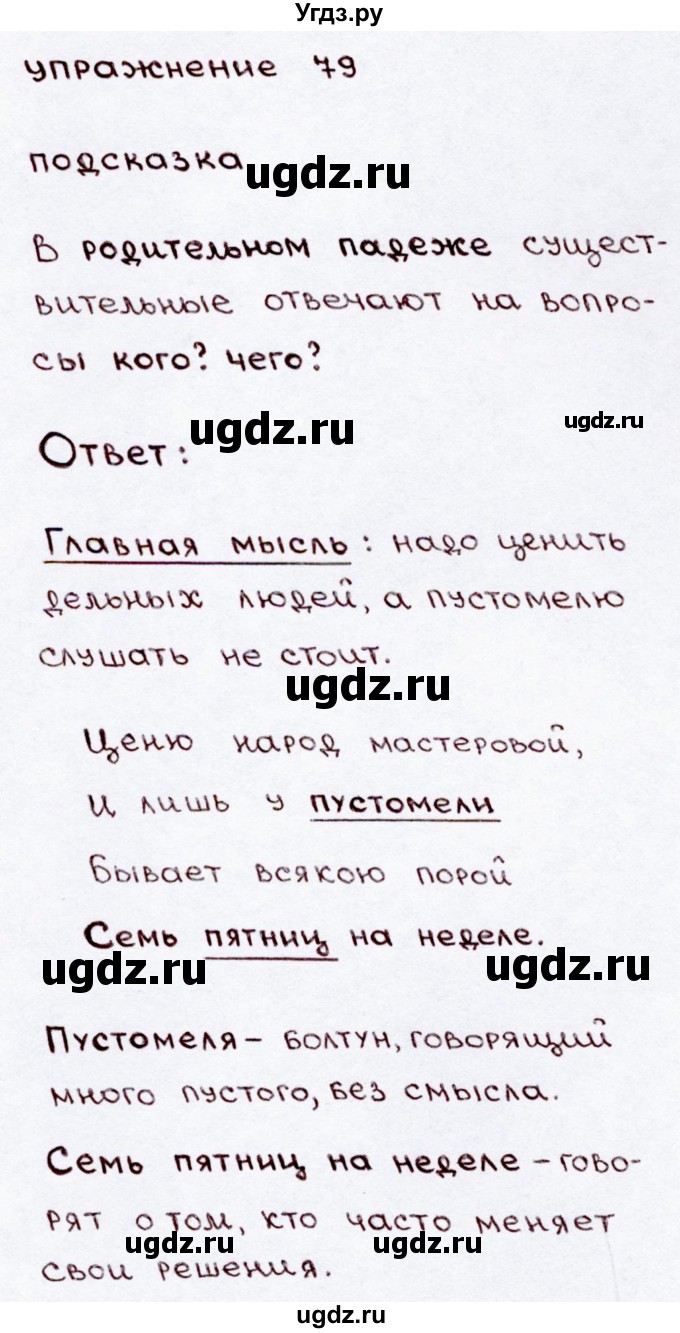 Угдз.ру
упражнение 79
подсказка
ugdz.ru
В родительном падеже сущест-
вительные отвечают на вопро-
сы кого? чего?
ugdz.ru
ugdz.ru
Ответ:
Главная мысль: надо ценить
дельных людей, а пустомелю
слушать не стоит.
ugdz.ru
Ценю народ мастеровой,
И лишь у пустомели
Бывает всякою порой
Семь пятниц на неделе.
ugdz.ru
ugdz.ru
Пустомеля – болтун, говорящий
много пустого, без смысла.
Семь пятниц на неделе – гово-
рят о том, кто часто меняет
ugdz.ru
ugdz.ru
свои решения.
ugdz.ru